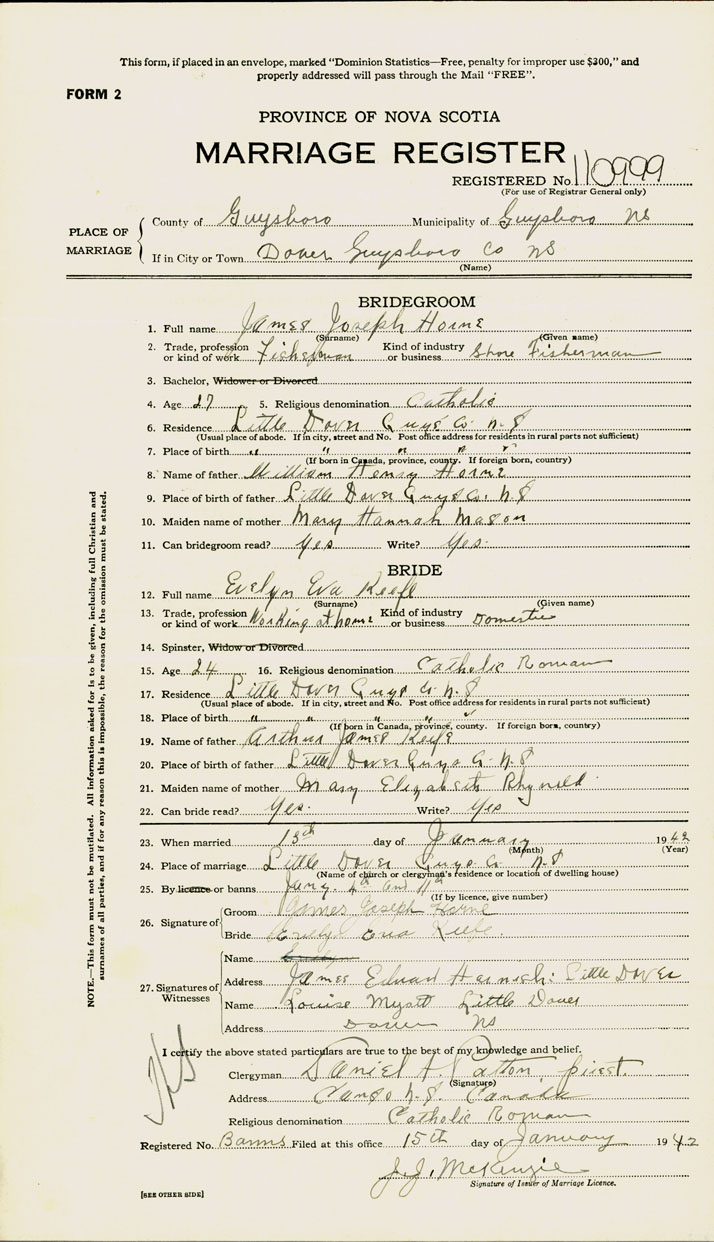 This form, if placed in an envelope, marked "Dominion Statistics—Free, penalty for improper use $300," and
properly addressed will pass through the Mail "FREE".
FORM 2
PROVINCE OF NOVA SCOTIA
MARRIAGE REGISTER
REGISTERED No. 110999
(For use of Registrar General only)
PLACE OF MARRIAGE
County of Guysboro Municipality of Guysboro NS
If in City or Town Dover Guysboro Co NS
(Name)
BRIDEGROOM
1. Full name James Joseph Horne
(Surname) (Given name)
2. Trade, profession or kind of work Fisherman Kind of industry or business Shore Fisherman
3. Bachelor, Widower or Divorced
4. Age 27 5. Religious denomination Catholic
6. Residence Little Dover Guys Co. N.S
(Usual place of abode. If in city, street and No. Post office address for residents in rural parts not sufficient)
7. Place of birth " " " " "
(If born in Canada, province, county. If foreign born, country)
8. Name of father William Henry Horne
9. Place of birth of father Little Dover Guys Co. N.S
10. Maiden name of mother Mary Hannah Mason
11. Can bridegroom read? Yes Write? Yes.
BRIDE
12. Full name Evelyn Eva Keefe
(Surname) (Given name)
13. Trade, profession or kind of work Working at home Kind of industry or business Domestic
14. Spinster, Widow or Divorced
15. Age 24 16. Religious denomination Catholic Roman
17. Residence Little Dover Guys Co N.S
(Usual place of abode. If in city, street and No. Post office address for residents in rural parts not sufficient)
18. Place of birth " " " " "
(If born in Canada, province, county. If foreign born, country)
19. Name of father Arthur James Keefe
20. Place of birth of father Little Dover Guys Co. N.S
21. Maiden name of mother Mary Elizabeth
22. Can bride read? Yes. Write? Yes
23. When married 15th day of January 1942
(Month) (Year)
24. Place of marriage Little Dover Guys Co N.S
(Name of church or clergyman's residence or location of dwelling house)
25. By licence or banns Jany. 4th and 11th
(If by licence, give number)
26. Signature of
Groom James Joseph Horne
Bride Evelyn Eva Keefe
27. Signatures of Witnesses
Name
Address James Edward Little Dover
Name Louise Myatt Little Dover
Address Dover NS
I certify the above stated particulars are true to the best of my knowledge and belief.
Clergyman Daniel A. Patton priest.
(Signature)
Address Canso N.S. Canada
Religious denomination Catholic Roman
Registered No. Banns Filed at this office 15th day of January 1942
J. J. McKenzie
Signature of Issuer of Marriage Licence.
[SEE OTHER SIDE]
NOTE.—This form must not be mutilated. All information asked for is to be given, including full Christian and
surnames of all parties, and if for any reason this is impossible, the reason for the omission must be stated.